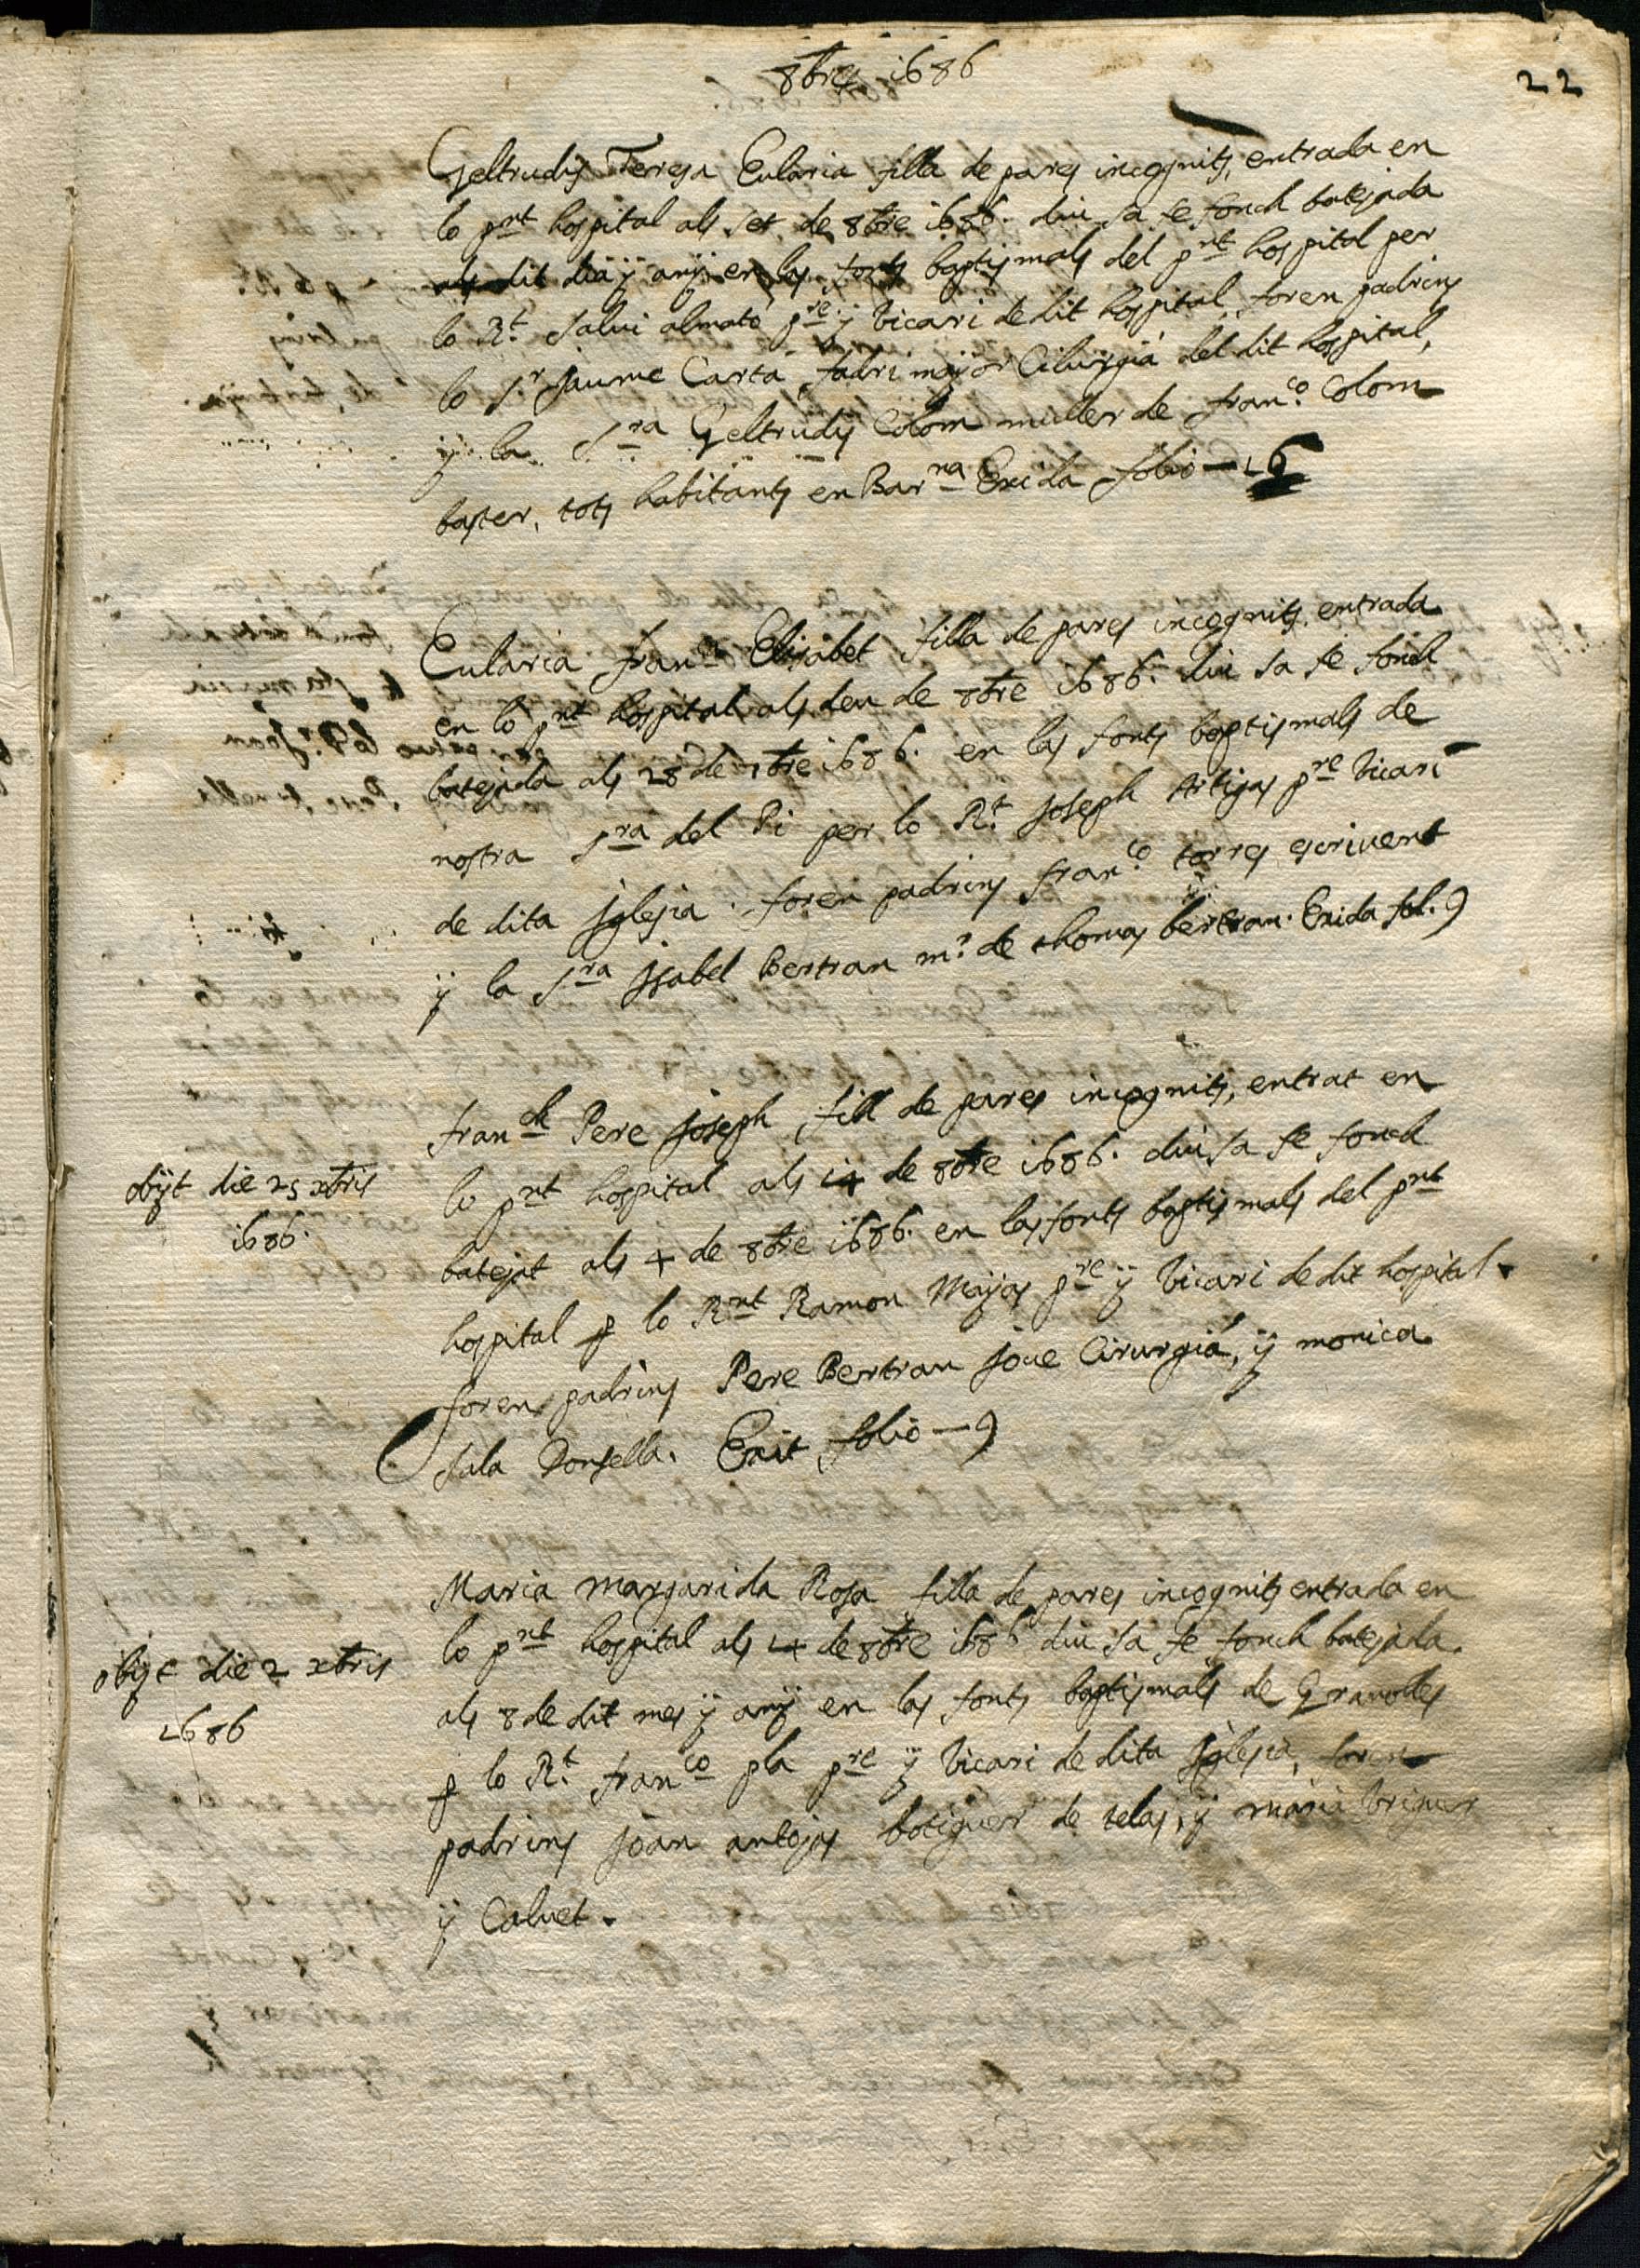 8bres 1686
22
Geltrudis Teresa Eularia filla de pares incognits, entrada en
lo pnt hospital als set de 8bre 1686. diu sa fe fonch batejada
als dit dia y any en las fonts baptismals del pnt hospital per
lo Rt. Salui almato pre. y vicari de dit hospital, foren padrins
lo Sr Jaume Carta fadri major Cilurgia del dit hospital,
y la Sra Geltrudis Colom muller de franco. Colom
baster, tots habitants en Barna Exida folio — 16
Eularia franca Elisabet filla de pares incognits, entrada
en lo pnt hospital als deu de 8bre 1686. diu sa fe fonch
batejada als 28 de 7bre 1686. en las fonts baptismals de
nostra Sra del Pi per lo Rt. Joseph Artigas pre vicari
de dita Iglesia. foren padrins franco. torres escrivent
y la Sra Isabel Bertran mr. de thomas bertran. Exida fol. 9
franch Pere Joseph, fill de pares incognits, entrat en
obijt die 25 xbris
1686.
lo pnt hospital als 14 de 8bre 1686. diu sa fe fonch
batejat als 4 de 8bre 1686. en las fonts baptismals del pnt
hospital p lo Rnt Ramon Mayas pre y vicari de dit hospital.
foren padrins Pere Bertran Joue Cirurgia, y monica
Sala Donsella. Exit folio — 9
Maria Margarida Rosa filla de pares incognits entrada en
obijt die 2 xbris
1686
lo pnt hospital als 14 de 8bre 1686 diu sa fe fonch batejada.
als 8 de dit mes y any en las fonts baptismals de Granolles
p lo Rt. franco pla pre y vicari de dita Iglesia, foren
padrins Joan antojas botiguer de telas, y maria
y Caluet.